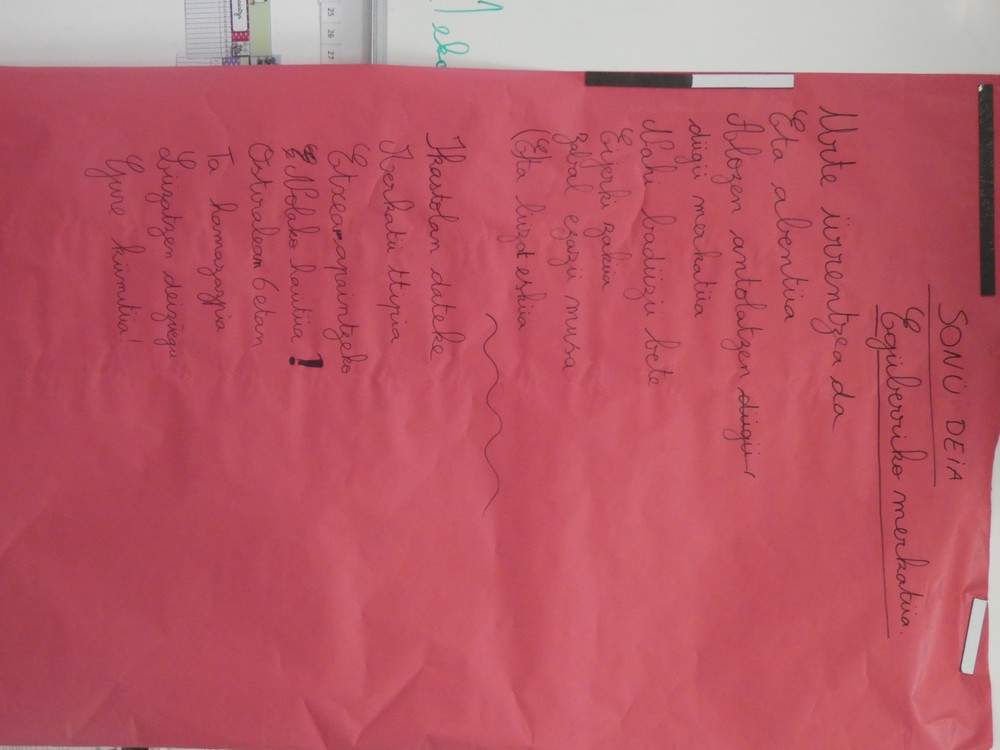 SONÜ DEIA
Egüberriko merkatüa.
Urte ürrentzea da
Eta abentüa
Algzen antolatzen dügü
dügü merkatüa
Nahi badüzü bete
Eijerki zaküa
zabal ezazü musa
(Eta lüzat eskua
Ikastolan diteke
Merkatü ttipia
Etxea apaintzeko
Nolako hautüa!
Ostralean 6etan
Ta hamazazpia
Luzatzen deizüegü
Gure kümitia!
1 eko
25
26
27